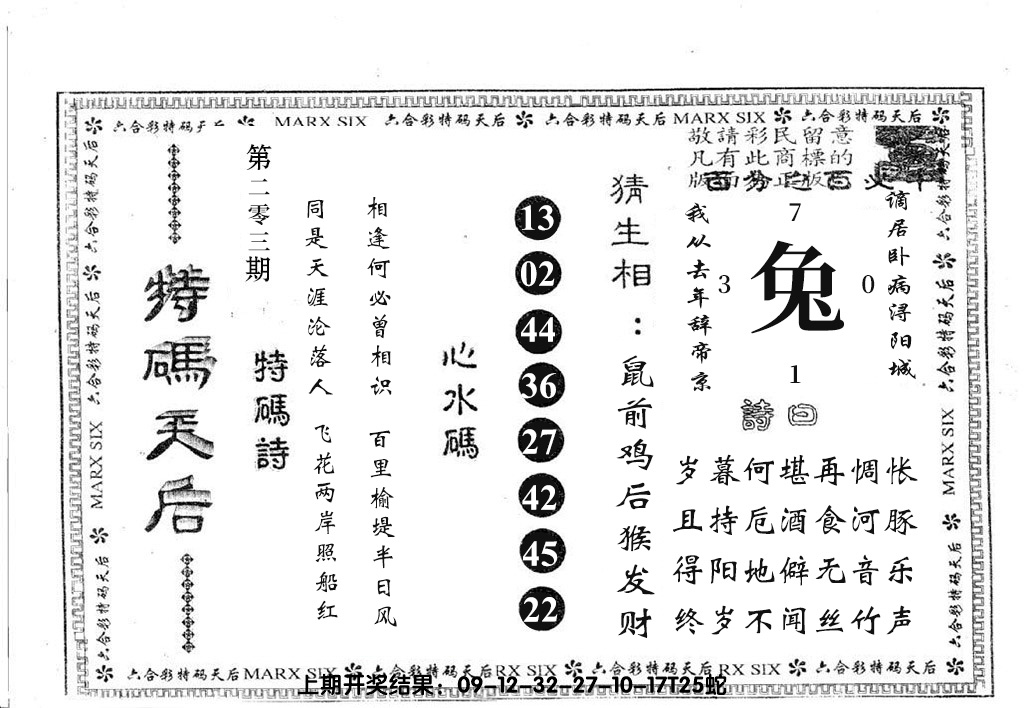 六合彩特码天后 MARX SIX 六合彩特码天后 六合彩特码天后 MARX SIX 六合彩特码天后
敬請彩民留意
凡有此商標的
特碼天后
第二零三期
特碼詩
同是天涯沦落人 飞花两岸照船红
相逢何必曾相识 百里榆堤半日风
心水碼
13
02
44
36
27
42
45
22
猜生相：鼠前鸡后猴发财
我从去年辞帝京
7
3
兔
0
1
谪居卧病浔阳城
詩曰
岁暮何堪再惆怅
且持卮酒食河豚
得阳地僻无音乐
终岁不闻丝竹声
六合彩特码天后 六合彩特码天后 MARX SIX 六合彩特码天后
六合彩特码天后 六合彩特码天后 MARX SIX 六合彩特码天后
六合彩特码天后 MARX SIX 六合彩特码天后 RX SIX 六合彩特码天后 RX SIX 六合彩特码天后
上期开奖结果：09-12-32-27-10-17T25蛇